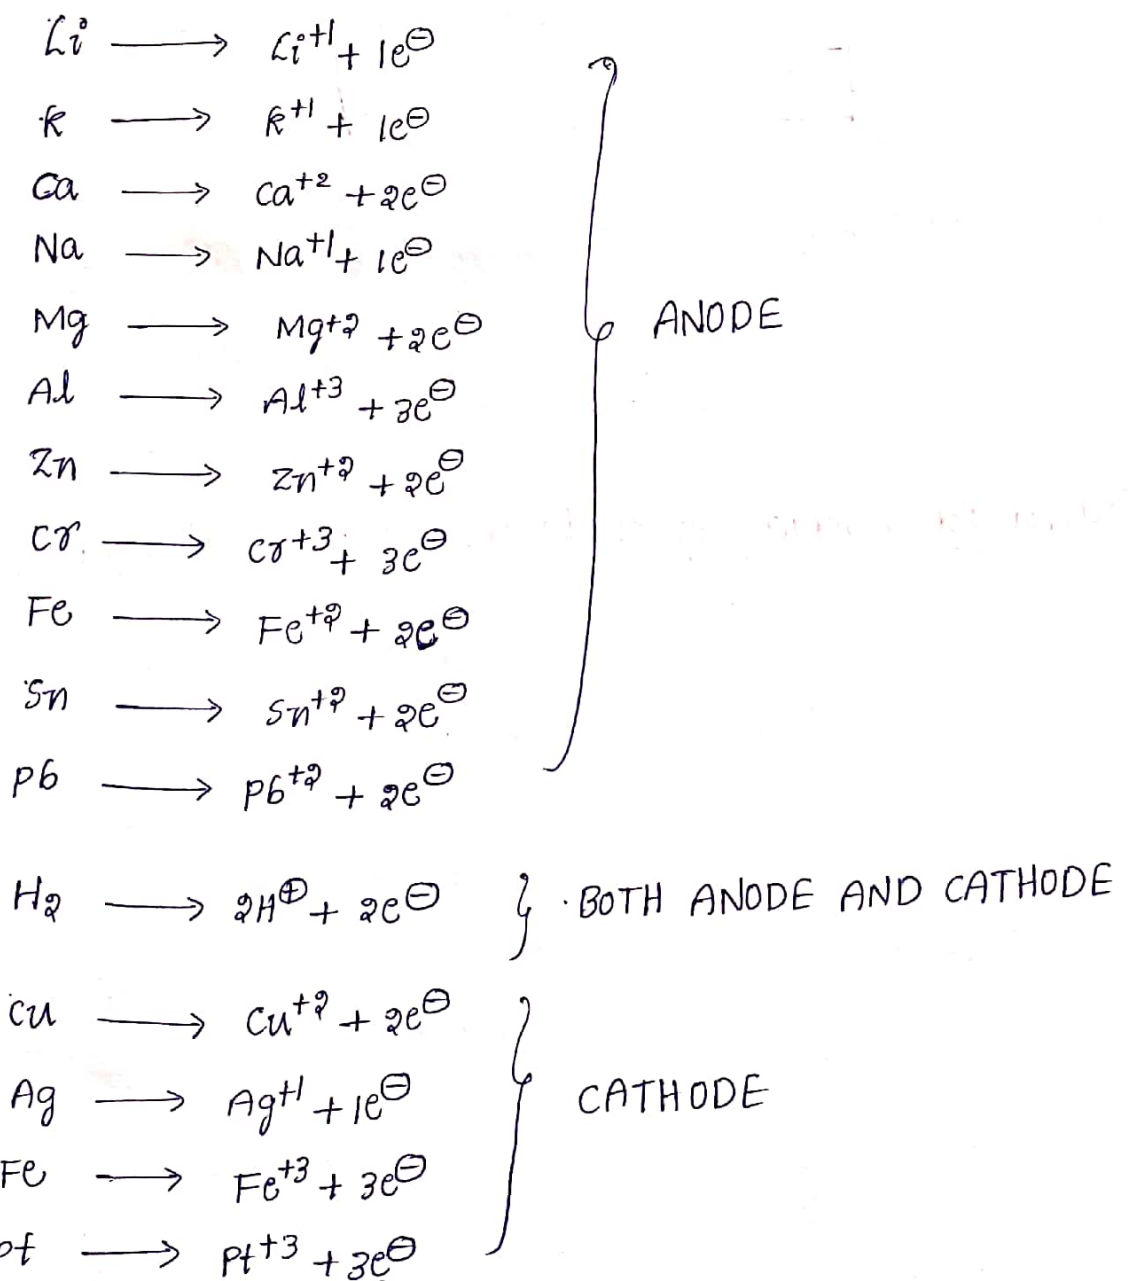 Li → Li⁺¹ + 1e⊖
K → K⁺¹ + 1e⊖
Ca → Ca⁺² + 2e⊖
Na → Na⁺¹ + 1e⊖
Mg → Mg⁺² + 2e⊖
ANODE
Al → Al⁺³ + 3e⊖
Zn → Zn⁺² + 2e⊖
Cr → Cr⁺³ + 3e⊖
Fe → Fe⁺² + 2e⊖
Sn → Sn⁺² + 2e⊖
Pb → Pb⁺² + 2e⊖
H₂ → 2H⊕ + 2e⊖ } BOTH ANODE AND CATHODE
Cu → Cu⁺² + 2e⊖
Ag → Ag⁺¹ + 1e⊖
CATHODE
Fe → Fe⁺³ + 3e⊖
Pt → Pt⁺³ + 3e⊖